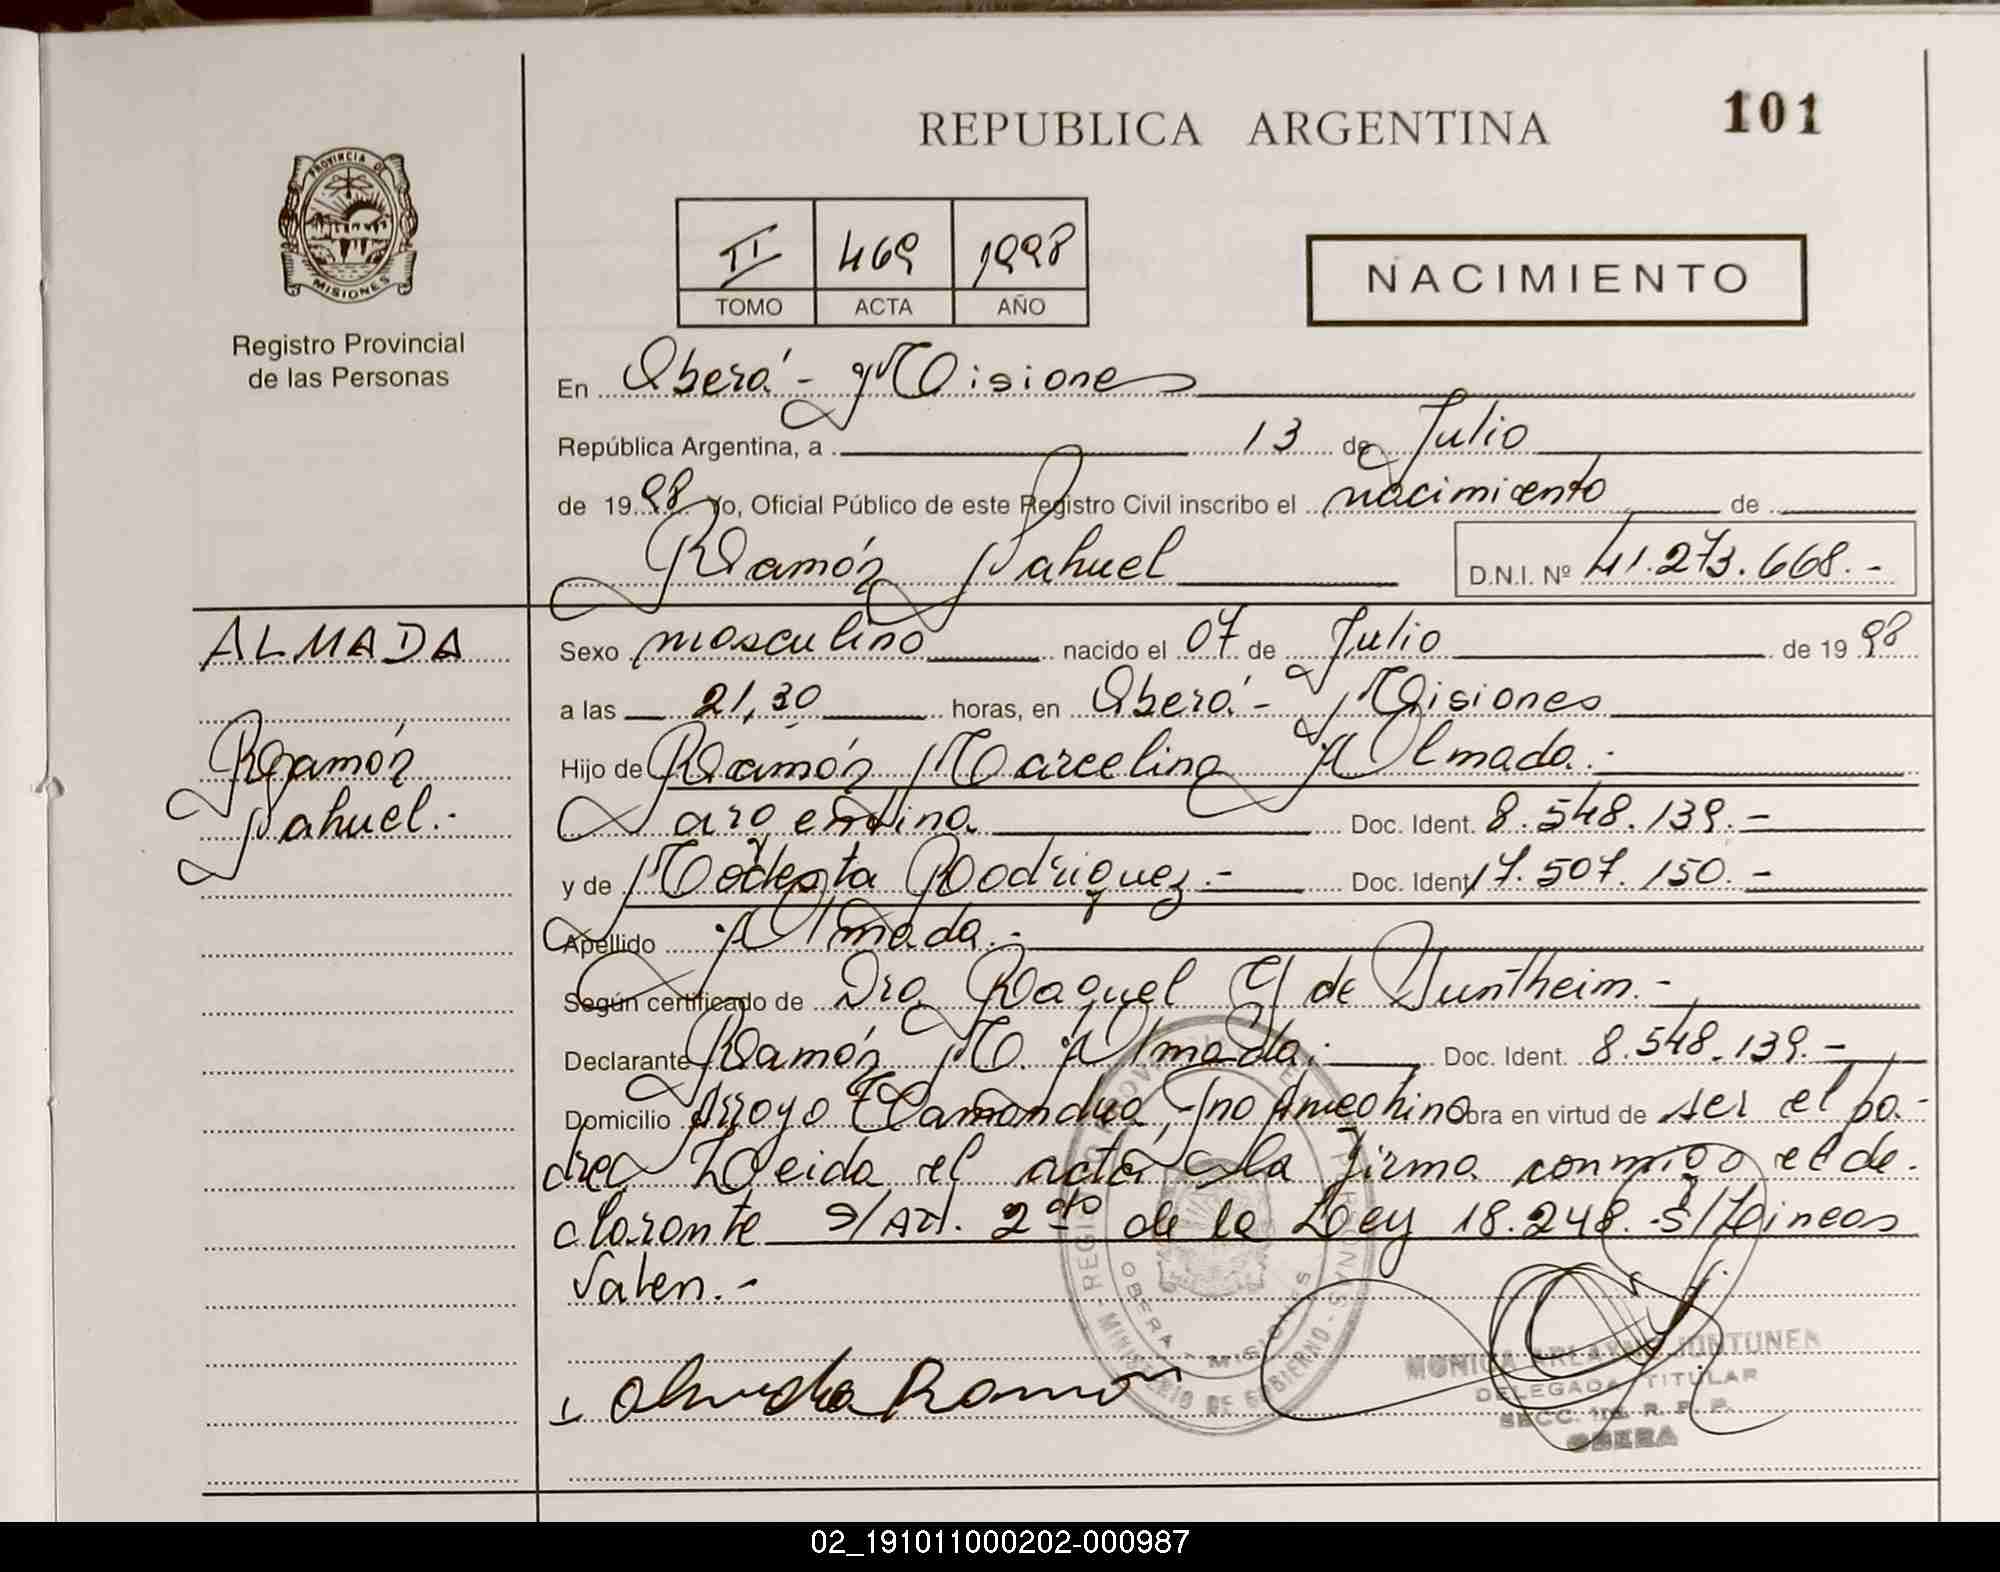 REPUBLICA ARGENTINA
101
PROVINCIA DE
MISIONES
Registro Provincial
de las Personas
II 469 1998
TOMO ACTA AÑO
NACIMIENTO
En Oberá - Misiones
República Argentina, a 13 de Julio
de 1998 Yo, Oficial Público de este Registro Civil inscribo el nacimiento de
Ramón Nahuel D.N.I. Nº 41.273.668.-
ALMADA
Ramón
Nahuel.-
Sexo masculino nacido el 07 de Julio de 1998
a las 21,30 horas, en Oberá - Misiones
Hijo de Ramón Marcelino Almada.-
argentino Doc. Ident. 8.548.139.-
y de Modesta Rodriguez.- Doc. Ident. 17.507.150.-
Apellido Almada.-
Según certificado de Dra Raquel G de Duntheim.-
Declarante Ramón M. Almada.- Doc. Ident. 8.548.139.-
Domicilio Arroyo Ameghino Obra en virtud de ser el pa-
dre Leida el acta la firma conmigo el de-
clarante s/Art. 2do de la Ley 18.248.- s/Lineas
Valen.-
Almada Ramón
REGISTRO PROVINCIAL DE LAS PERSONAS
MINISTERIO DE GOBIERNO
OBERA - MISIONES
MONICA
DELEGADA TITULAR
SECC. R. P. P.
OBERA
02_191011000202-000987